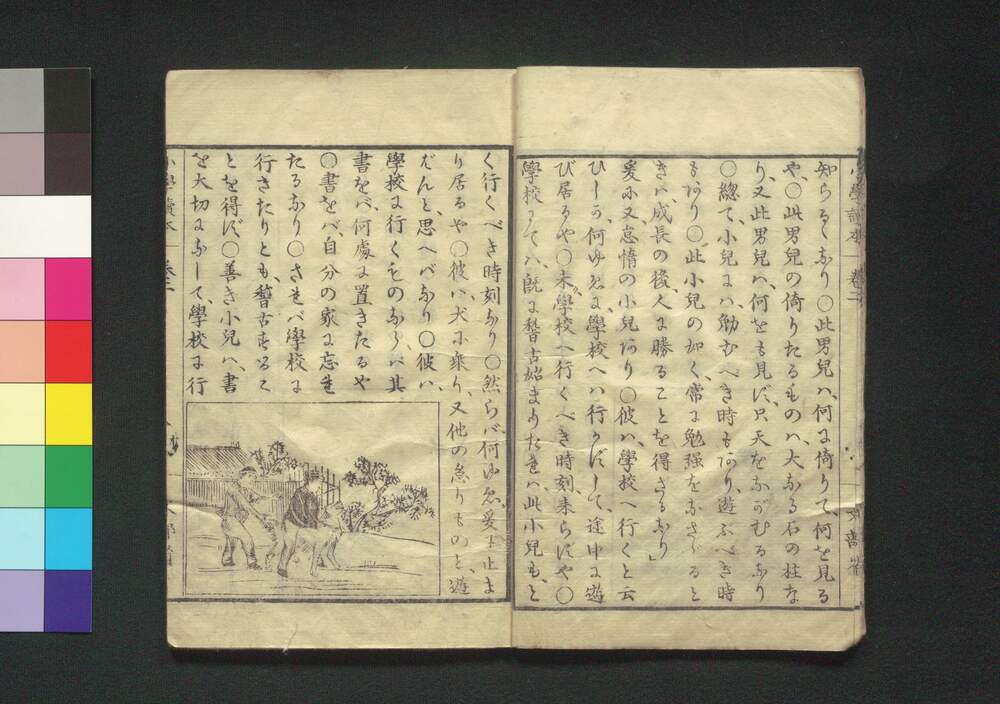 小學讀本 卷二
知らるゝなり○此男兒ハ、何に倚りて、何を見る
や、○此男兒の倚りたるものハ、大なる石の柱な
り、又此男兒ハ、何をも見ず、只天をながむるなり
○總て、小兒にハ勉むべき時もあり遊ぶべき時
もあり○此小兒の如く、常に勉強をなさゞると
きハ、成長の後人に勝ることを得ざるなり」
爰に又怠惰の小兒あり○彼ハ、學校へ行くと云
ひしが、何ゆゑに、學校へハ行かずして、途中に遊
び居るや○未學校へ行くべき時刻、來らずや○
學校にてハ既に稽古始まりたれバ、此小兒も、と
く行くべき時刻なり○然らバ何ゆゑ爰に止ま
り居るや○彼ハ、犬に乘り、又他の怠りものと、遊
ばんと、思へバなり○彼ハ、
學校に行くものならバ其
書をバ、何處に置きたるや
○書をバ、自分の家に忘れ
たるなり○されバ學校に
行きたりとも、稽古するこ
とを得ず○善き小兒ハ、書
を大切になして、學校に行
小學讀本 卷二